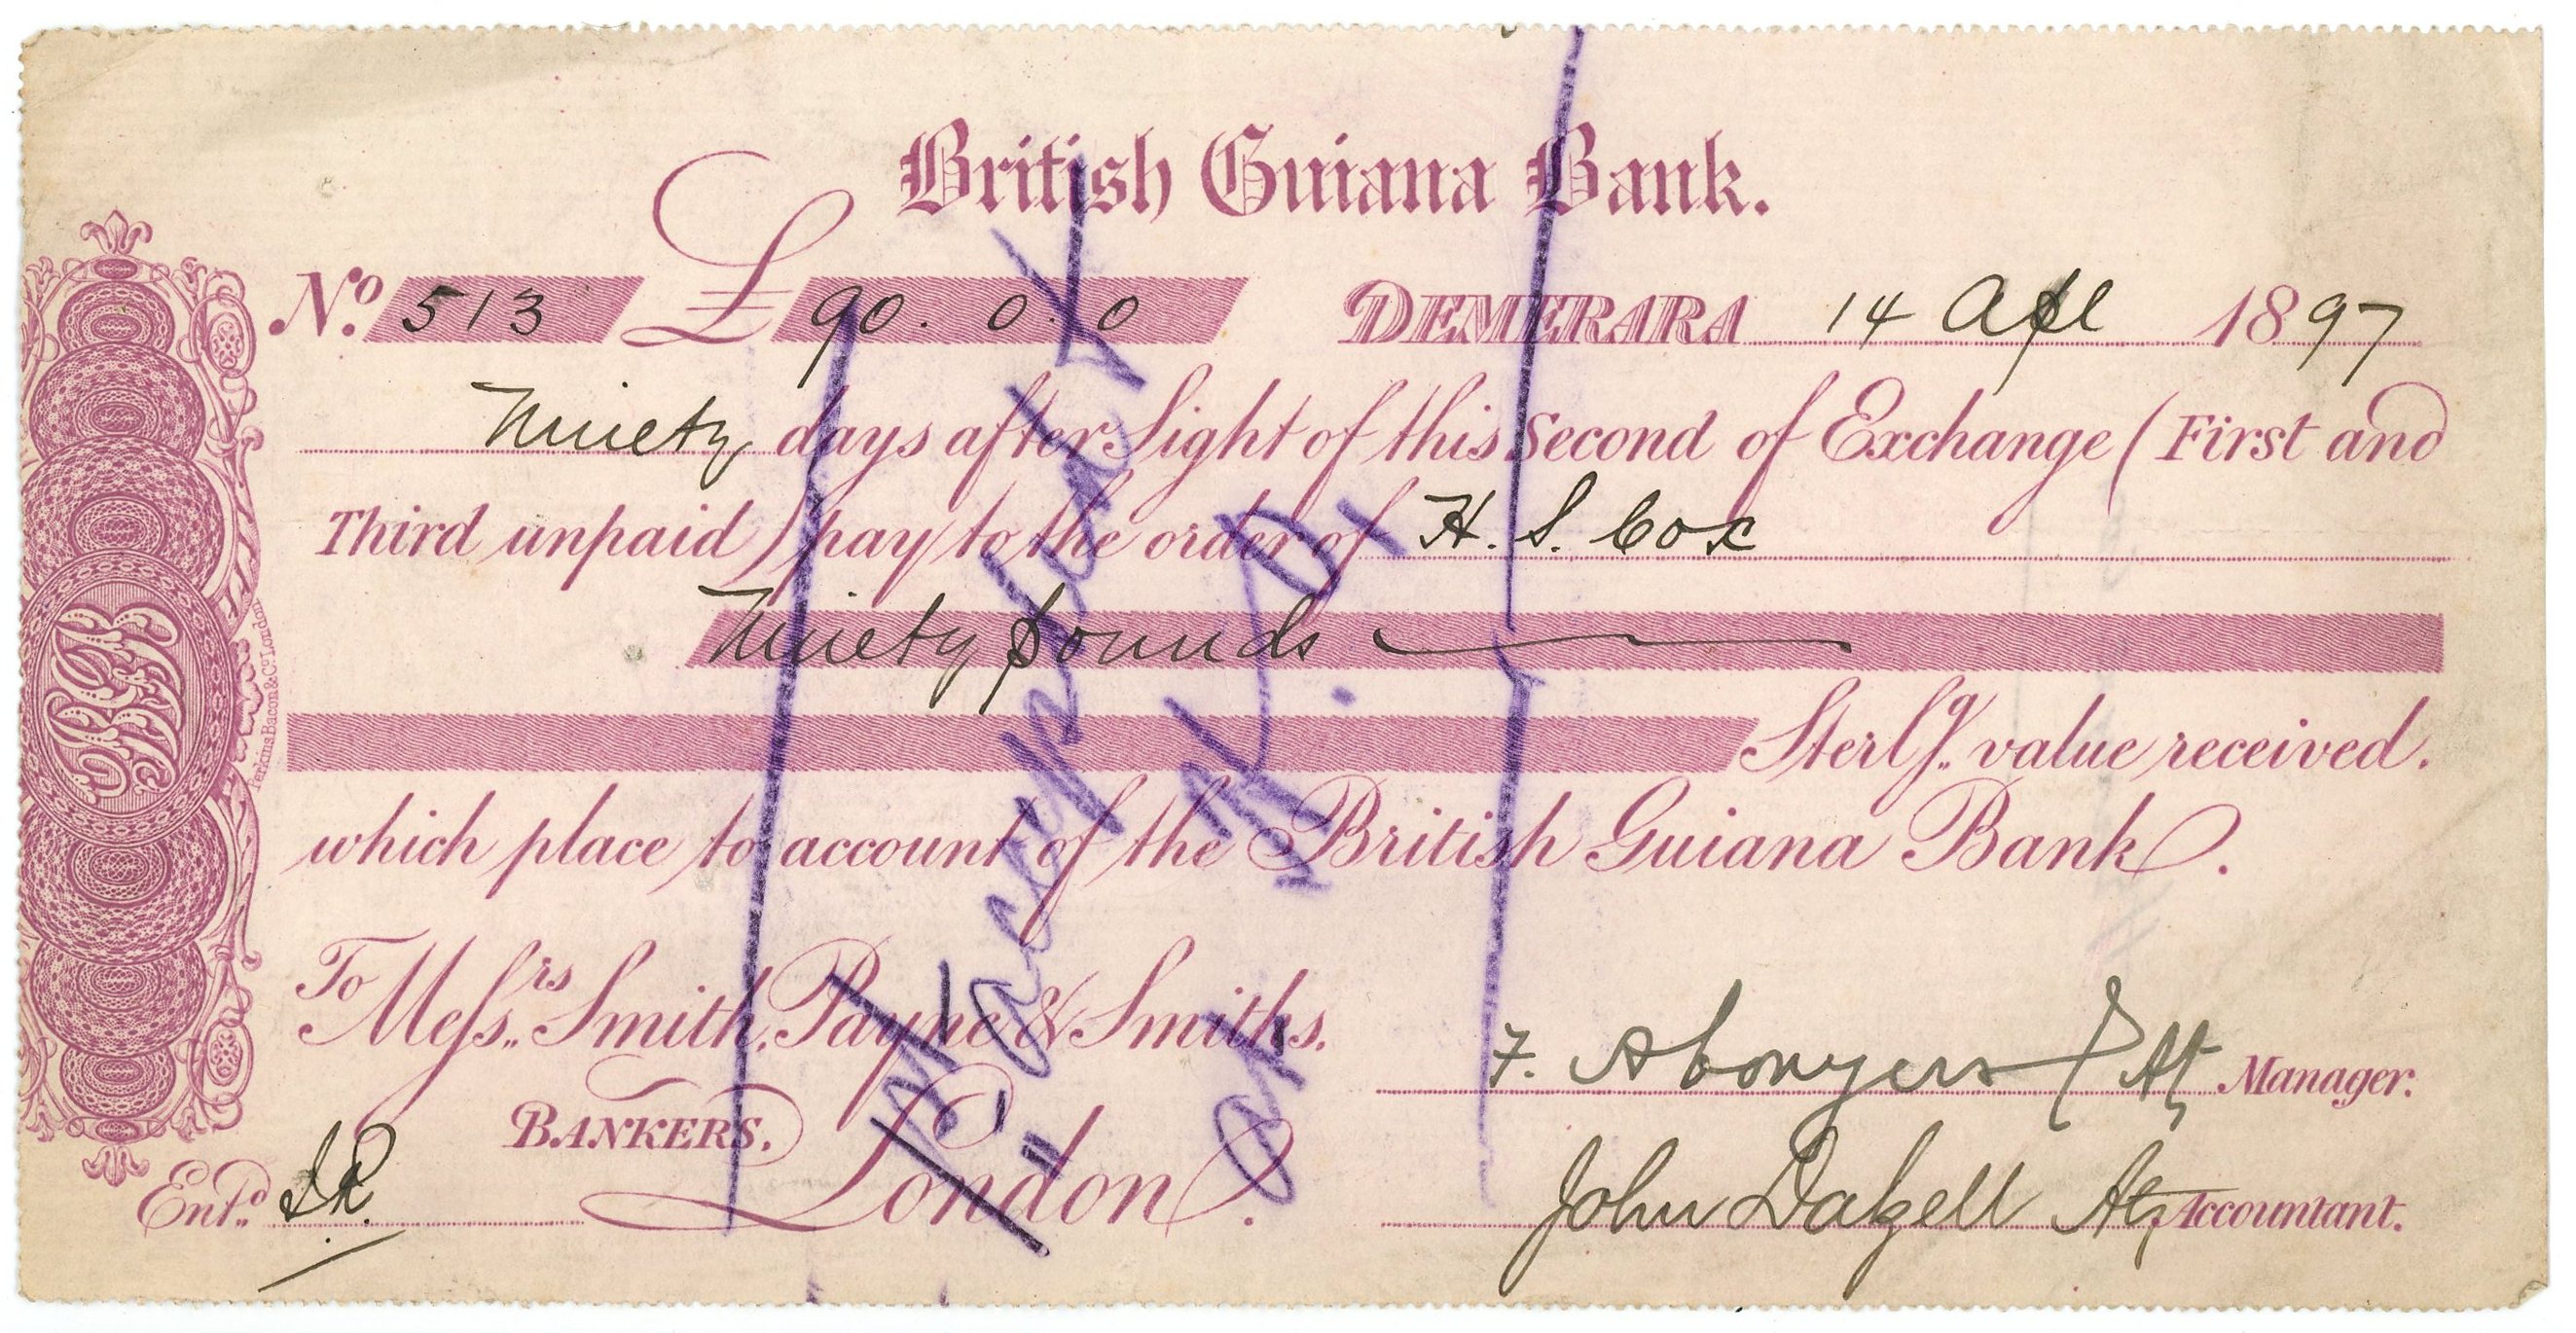 British Guiana Bank.
No. 513 £ 90. 0. 0 DEMERARA 14 Apl 1897
Ninety days after Sight of this Second of Exchange (First and
Third unpaid) pay to the order of H. S. Cox
Ninety pounds
Sterlg. value received.
which place to account of the British Guiana Bank.
To Messrs. Smith, Payne & Smiths.
BANKERS.
London.
F. A Conyers Manager.
John Dalzell Actg Accountant.
Entd.
BGB
Perkins Bacon & Co. London